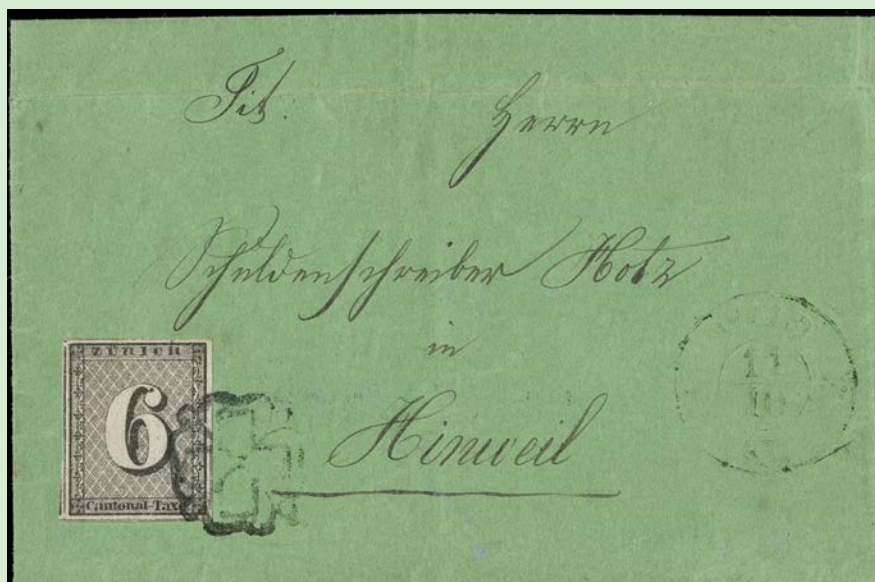 Tit: Herrn
Schuldenschreiber Hotz
in
Hinweil
ZÜRICH
6
Cantonal-Taxe
11